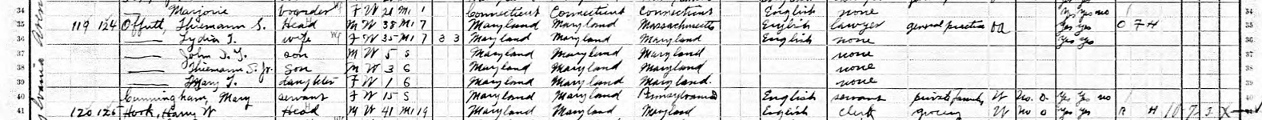 34 Marjorie boarder F W 21 M1 1 Connecticut Connecticut Connecticut English none Yes Yes no 34
35 119 124 Offutt, Thiemann S. Head M W 38 M1 7 Maryland Maryland Massachusetts English lawyer general practice OA Yes Yes O F H 35
36 —— Lydia T. wife F W 35 M1 7 3 3 Maryland Maryland Maryland English none Yes Yes 36
37 —— John T. T. son M W 5 S Maryland Maryland Maryland none 37
38 —— Thiemann S. Jr. Son M W 3 S Maryland Maryland Maryland none 38
39 —— Mary T. daughter F W 1 S Maryland Maryland Maryland none 39
40 Cunningham, Mary servant F W 15 S Maryland Maryland Pennsylvania English servant private family W no 0 Yes Yes no 40
41 120 125 Harry W Head M W 41 M1 19 Maryland Maryland Maryland English clerk grocery W no 0 Yes Yes R H 41